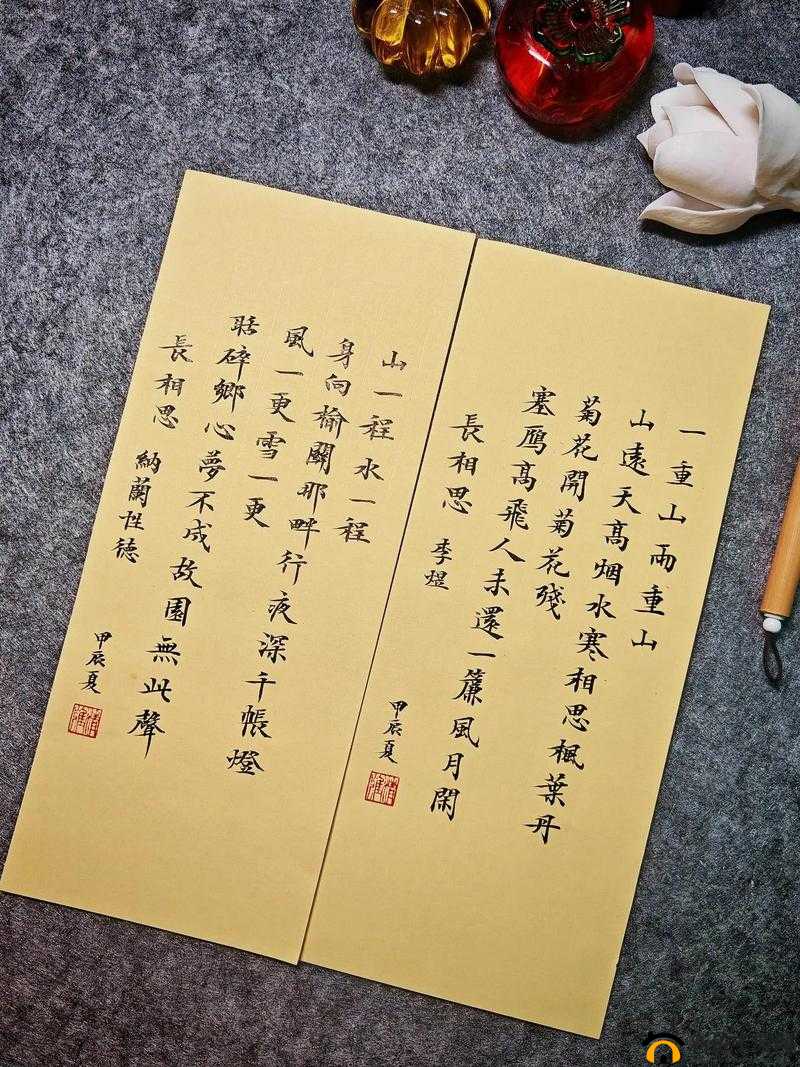 一重山兩重山
山遠天髙烟水寒相思楓葉丹
菊花開菊花殘
塞鴈髙飛人未還一簾風月閑
長相思 李煜
甲辰夏
山一程水一程
身向榆關那畔行夜深千帳燈
風一更雪一更
聒碎鄉心夢不成故園無此聲
長相思 納蘭性德
甲辰夏